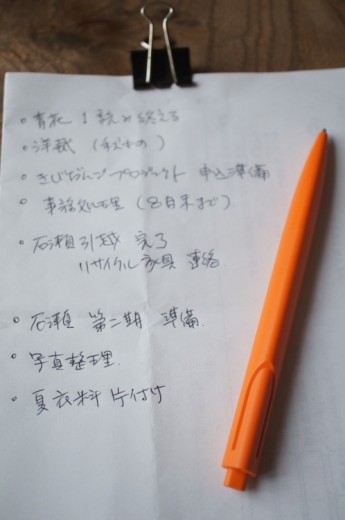 ・青花 1 読み終える
・洋裁 (手ぬい)
・きびだんごプロジェクト 申込準備
・事務処理 (8月末まで)
・石瀬引越 完了
リサイクル家具 連絡
・石瀬 第二期 準備
・写真整理
・夏衣料片付け